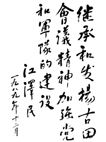 继承和发扬古田
會議精神加强党
和軍隊的建设
江泽民
一九八九年十二月